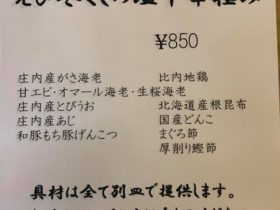 ¥850
庄内産がさ海老 比内地鶏
甘エビ・オマール海老・生桜海老
庄内産とびうお 北海道産根昆布
庄内産あじ 国産どんこ
和豚もち豚げんこつ まぐろ節
厚削り鰹節
具材は全て別皿で提供します。